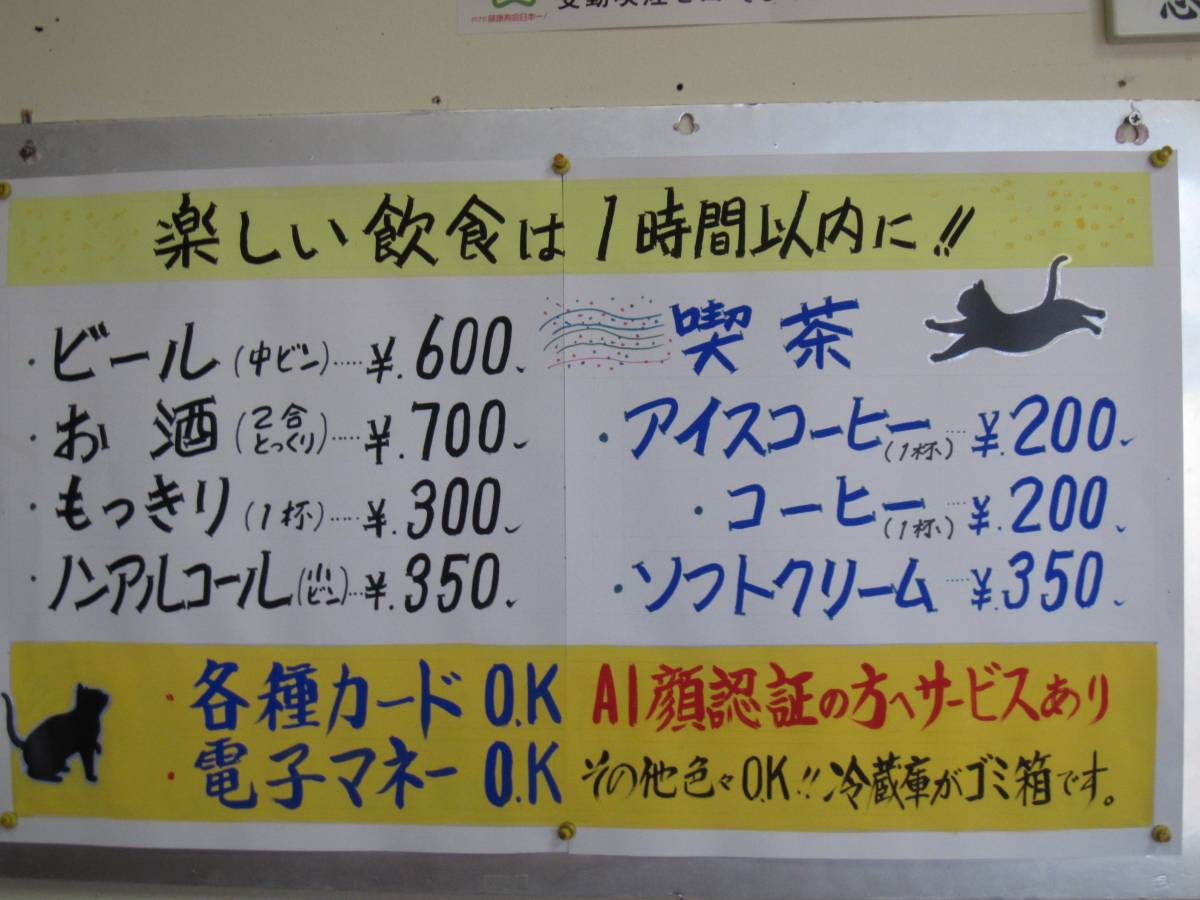 楽しい飲食は1時間以内に!!
・ビール(中ビン)‥‥¥.600
・お酒(2合とっくり)‥‥¥.700
・もっきり(1杯)‥‥¥.300
・ノンアルコール(小ビン)‥¥.350
喫茶
・アイスコーヒー(1杯)‥‥¥.200
・コーヒー(1杯)‥‥¥.200
・ソフトクリーム‥‥¥.350
・各種カードO.K
・電子マネーO.K
AI顔認証の方へサービスあり
その他色々O.K!!冷蔵庫がゴミ箱です。